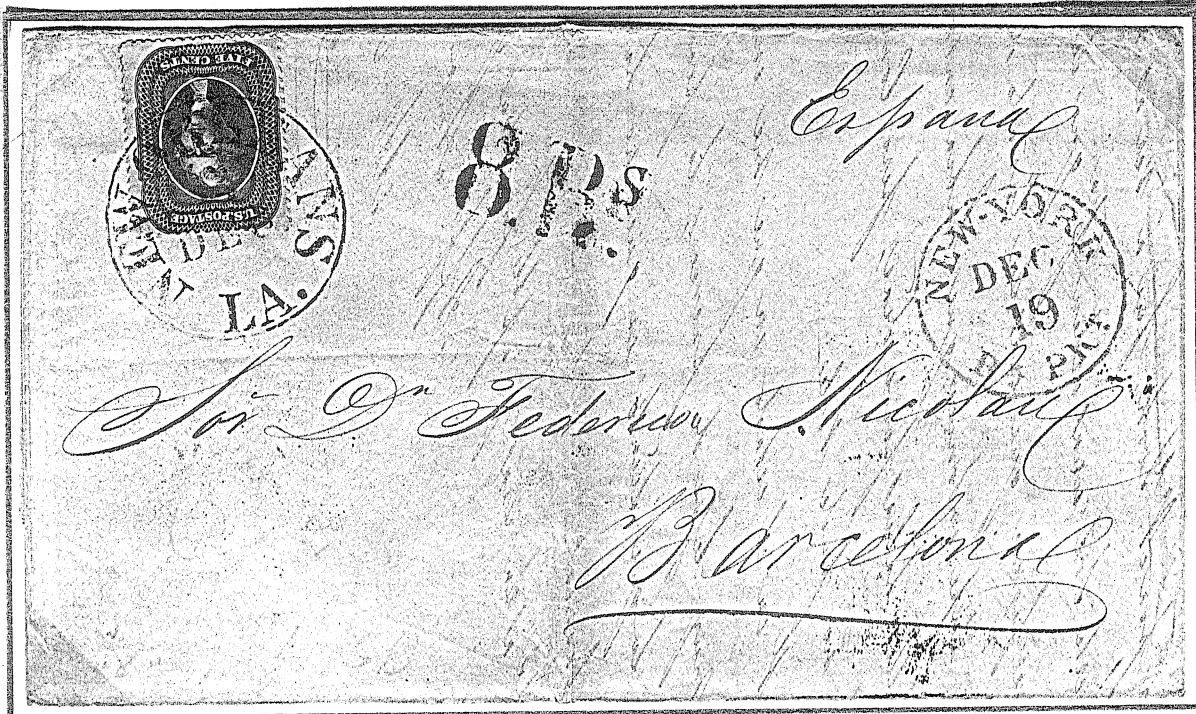 U.S. POSTAGE
FIVE CENTS
DEC
LA.
8 Rs.
España
NEW-YORK
DEC
19
PKT.
Sor Dn Federico Nicolau
Barcelona